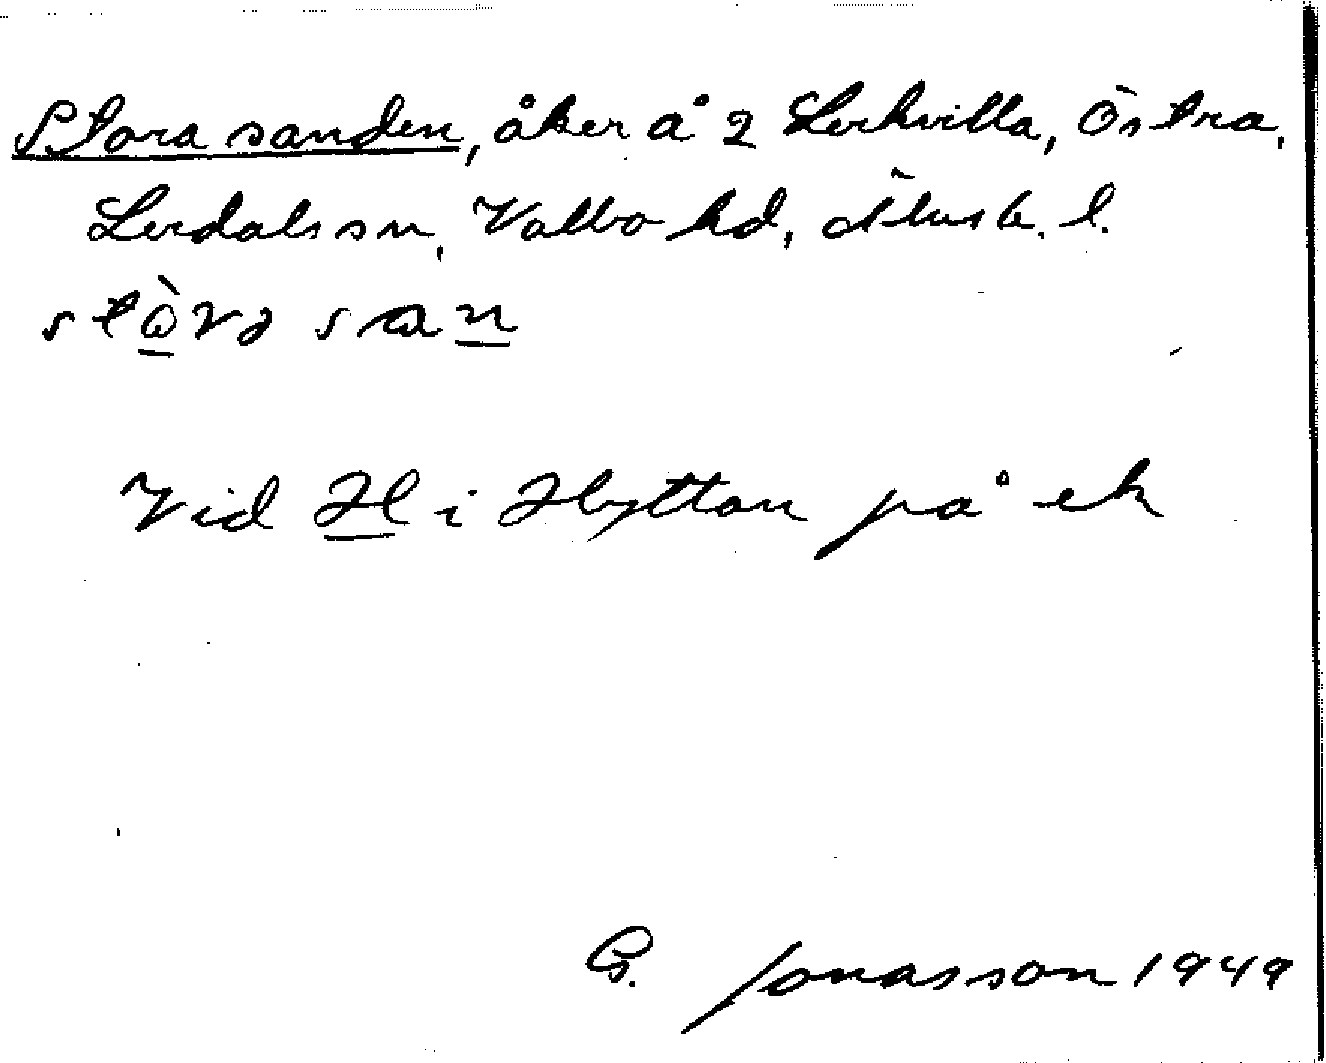 Stora sanden, åker å 2 Lerkvilla, Östra,
Lerdals sn, Valbo hd, Älvsb. l.
stòra san
Vid H i Hyttan på ek
G. Jonasson 1949